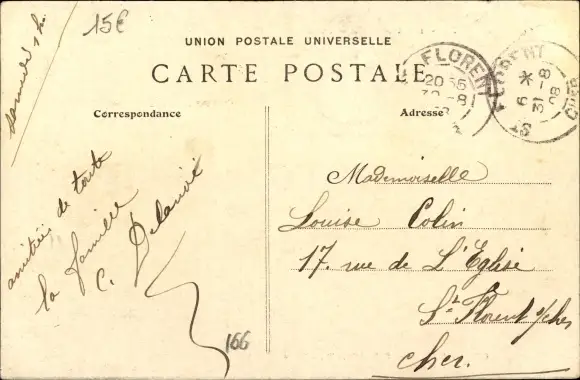 samedi 1 h.
15€
UNION POSTALE UNIVERSELLE
CARTE POSTALE
Correspondance
Adresse
amitiés de toute
la famille
C. Delanoé
166
Mademoiselle
Louise Colin
17. rue de L'Eglise
St Florent s/cher
Cher.
FLORENT
20 55
30 -8
FLORENT
CHER
6 *
31 - 8
08